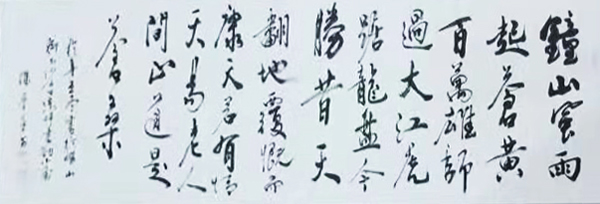 鐘山風雨
起蒼黄
百萬雄師
過大江虎
踞龍盤今
勝昔天
翻地覆慨而
慷天若有情
天易老人
間正道是
蒼桑